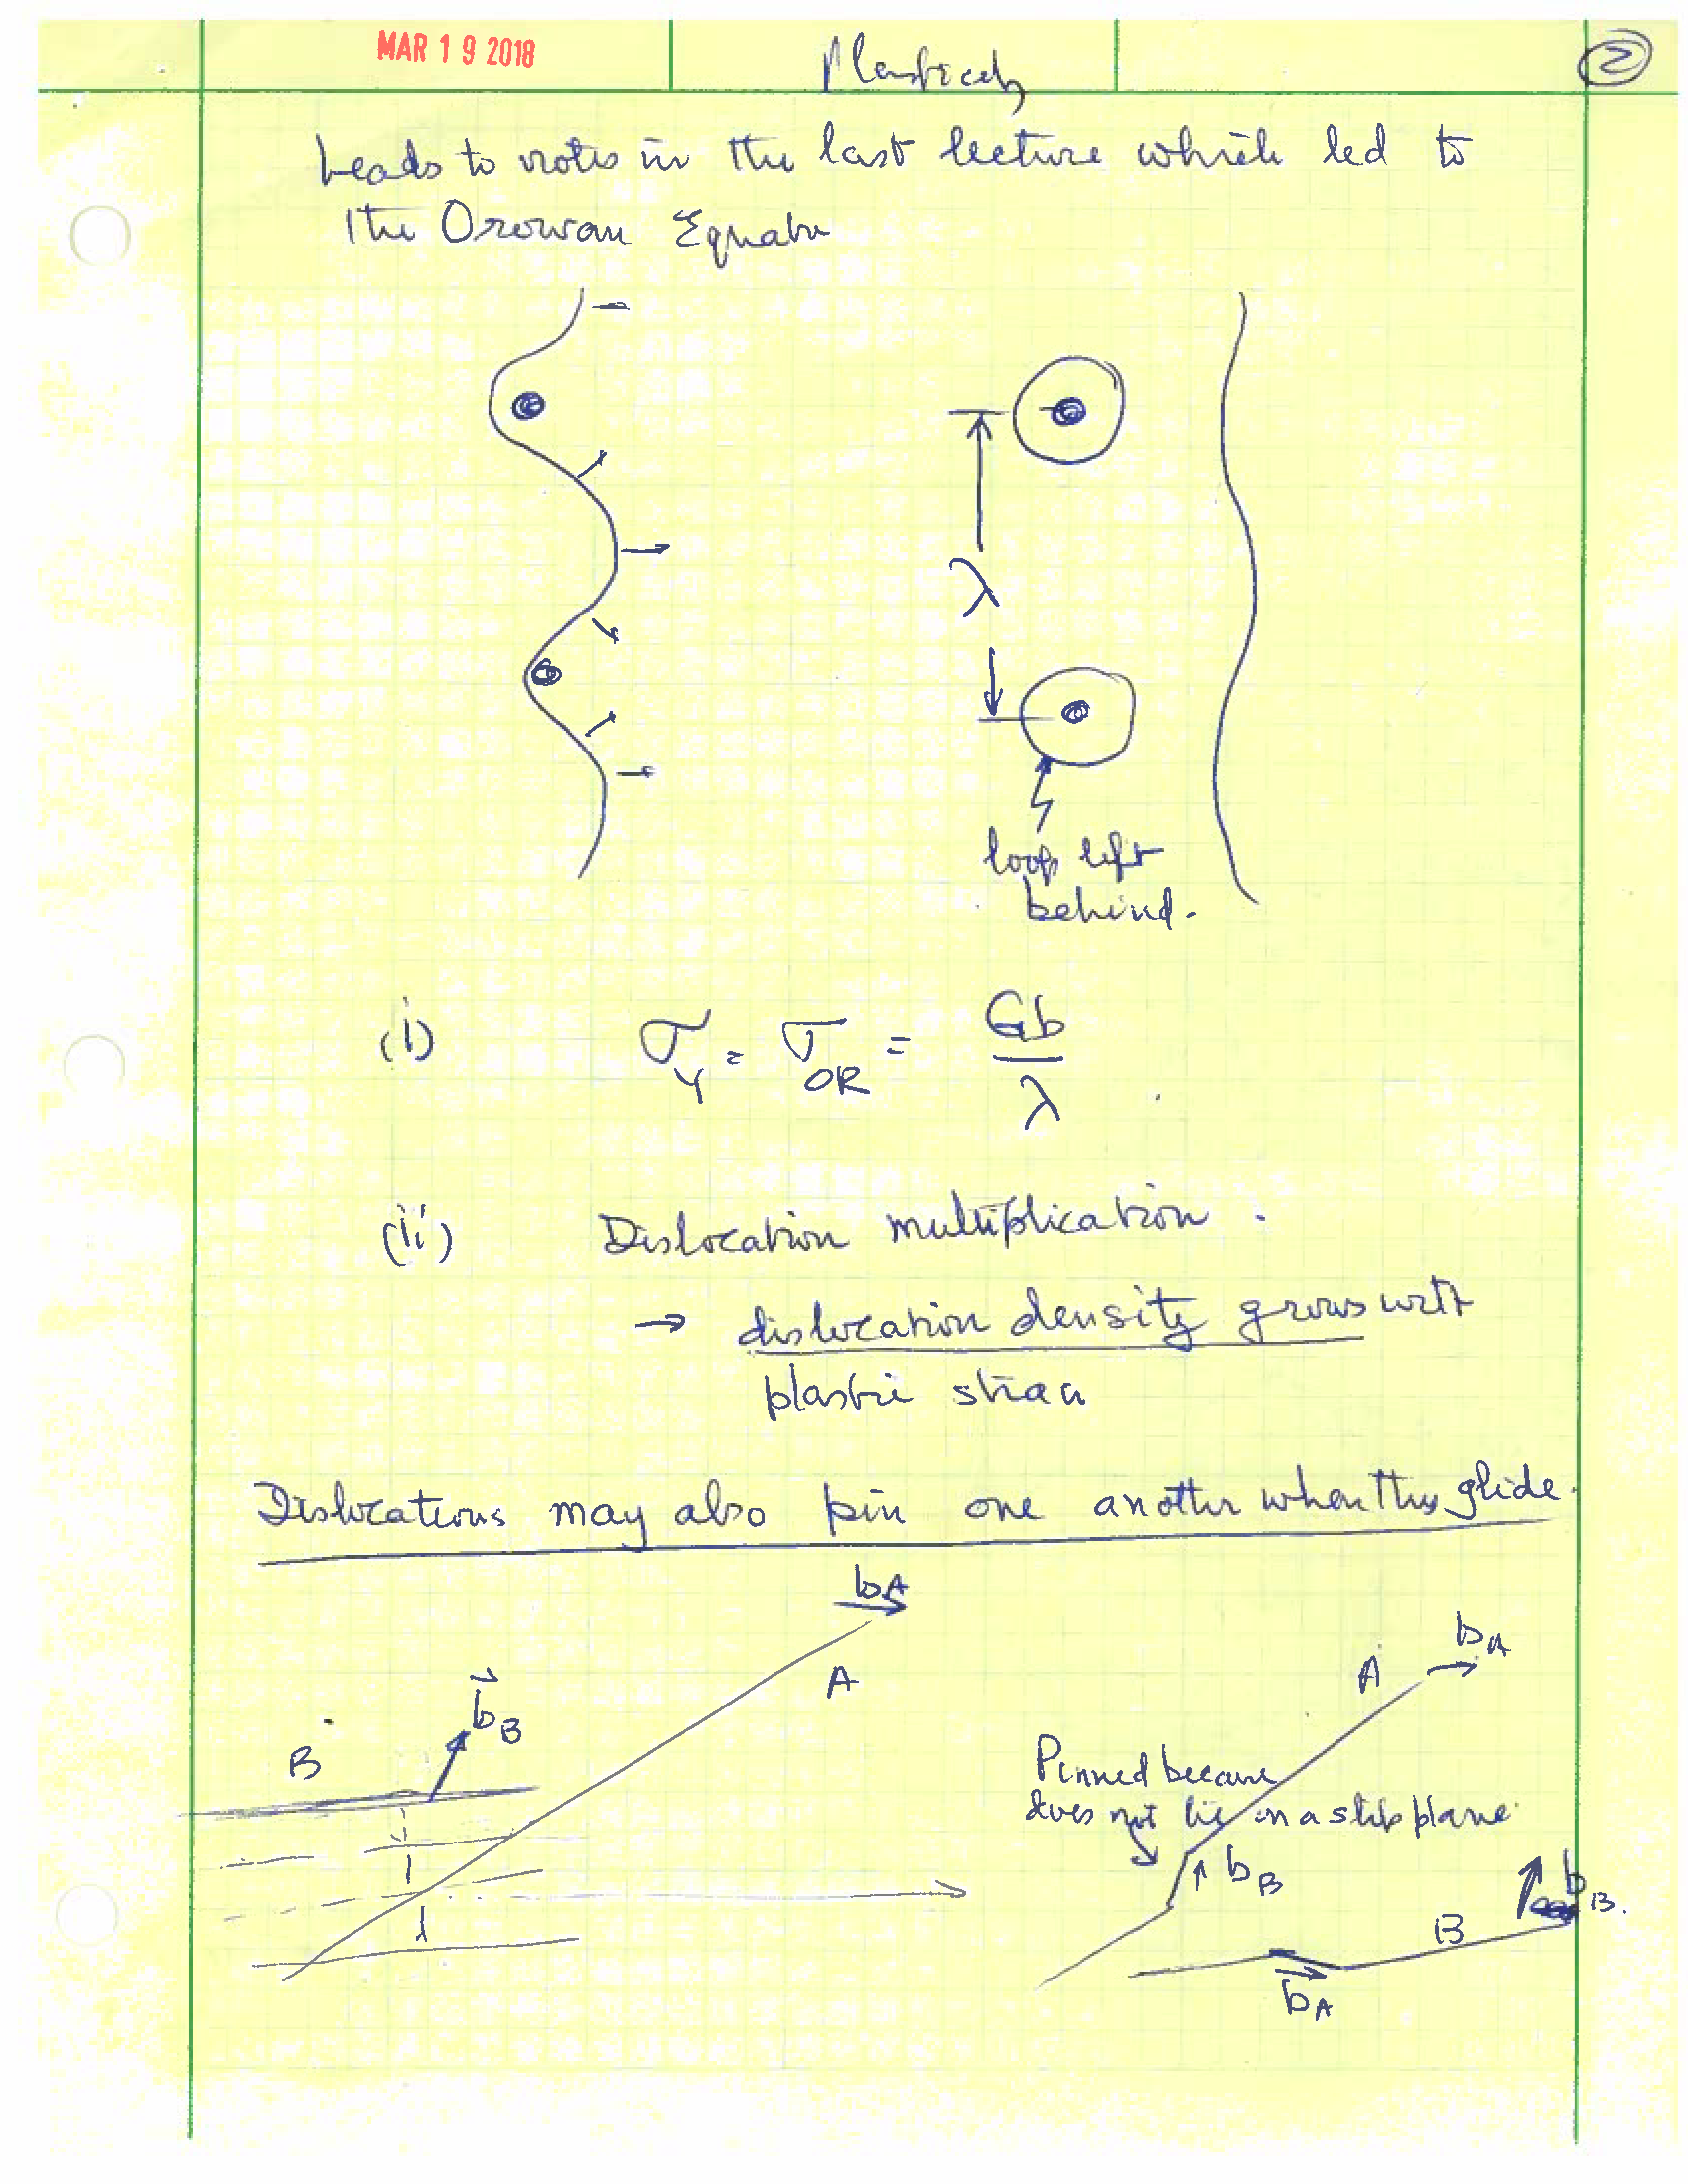 MAR 19 2018
Plasticity
2
Leads to notes in the last lecture which led to
the Orowan Equatn
λ
loop left
behind.
(i) σ_Y = σ_OR = Gb/λ
(ii) Dislocation multiplication.
→ dislocation density grows with
plastic strain
Dislocations may also pin one another when they glide.
b_A
A
b_B
B
A
b_A
Pinned because
does not lie in a slip plane.
b_B
b_B.
B
b_A